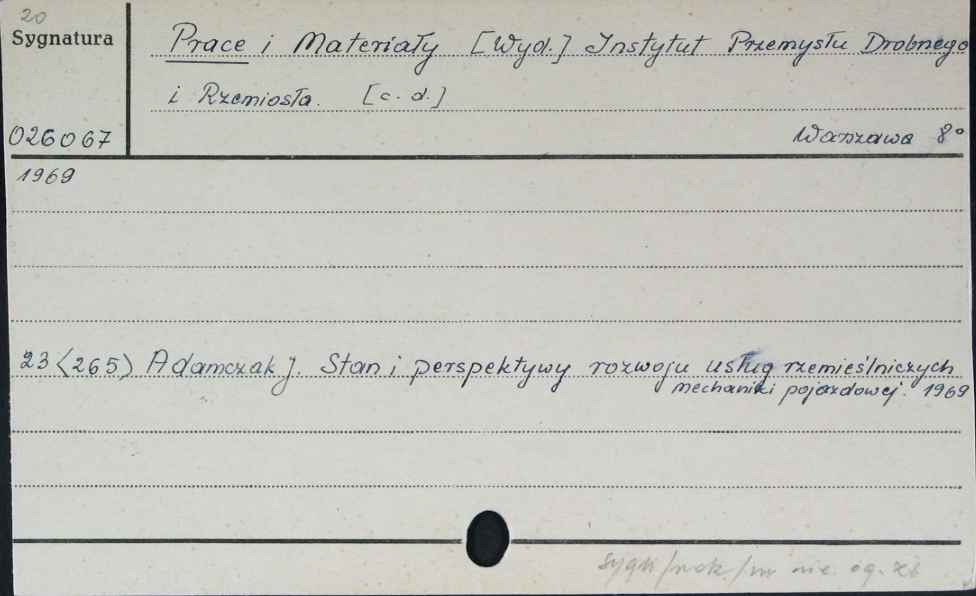 20
Sygnatura
Prace i Materiały [Wyd.] Instytut Przemysłu Drobnego
i Rzemiosła. [c.d.]
026067
Warszawa 8°
1969
23 <265> Adamczak J. Stan i perspektywy rozwoju usług rzemieślniczych
mechaniki pojazdowej. 1969
sygn/rok/nr nie og.